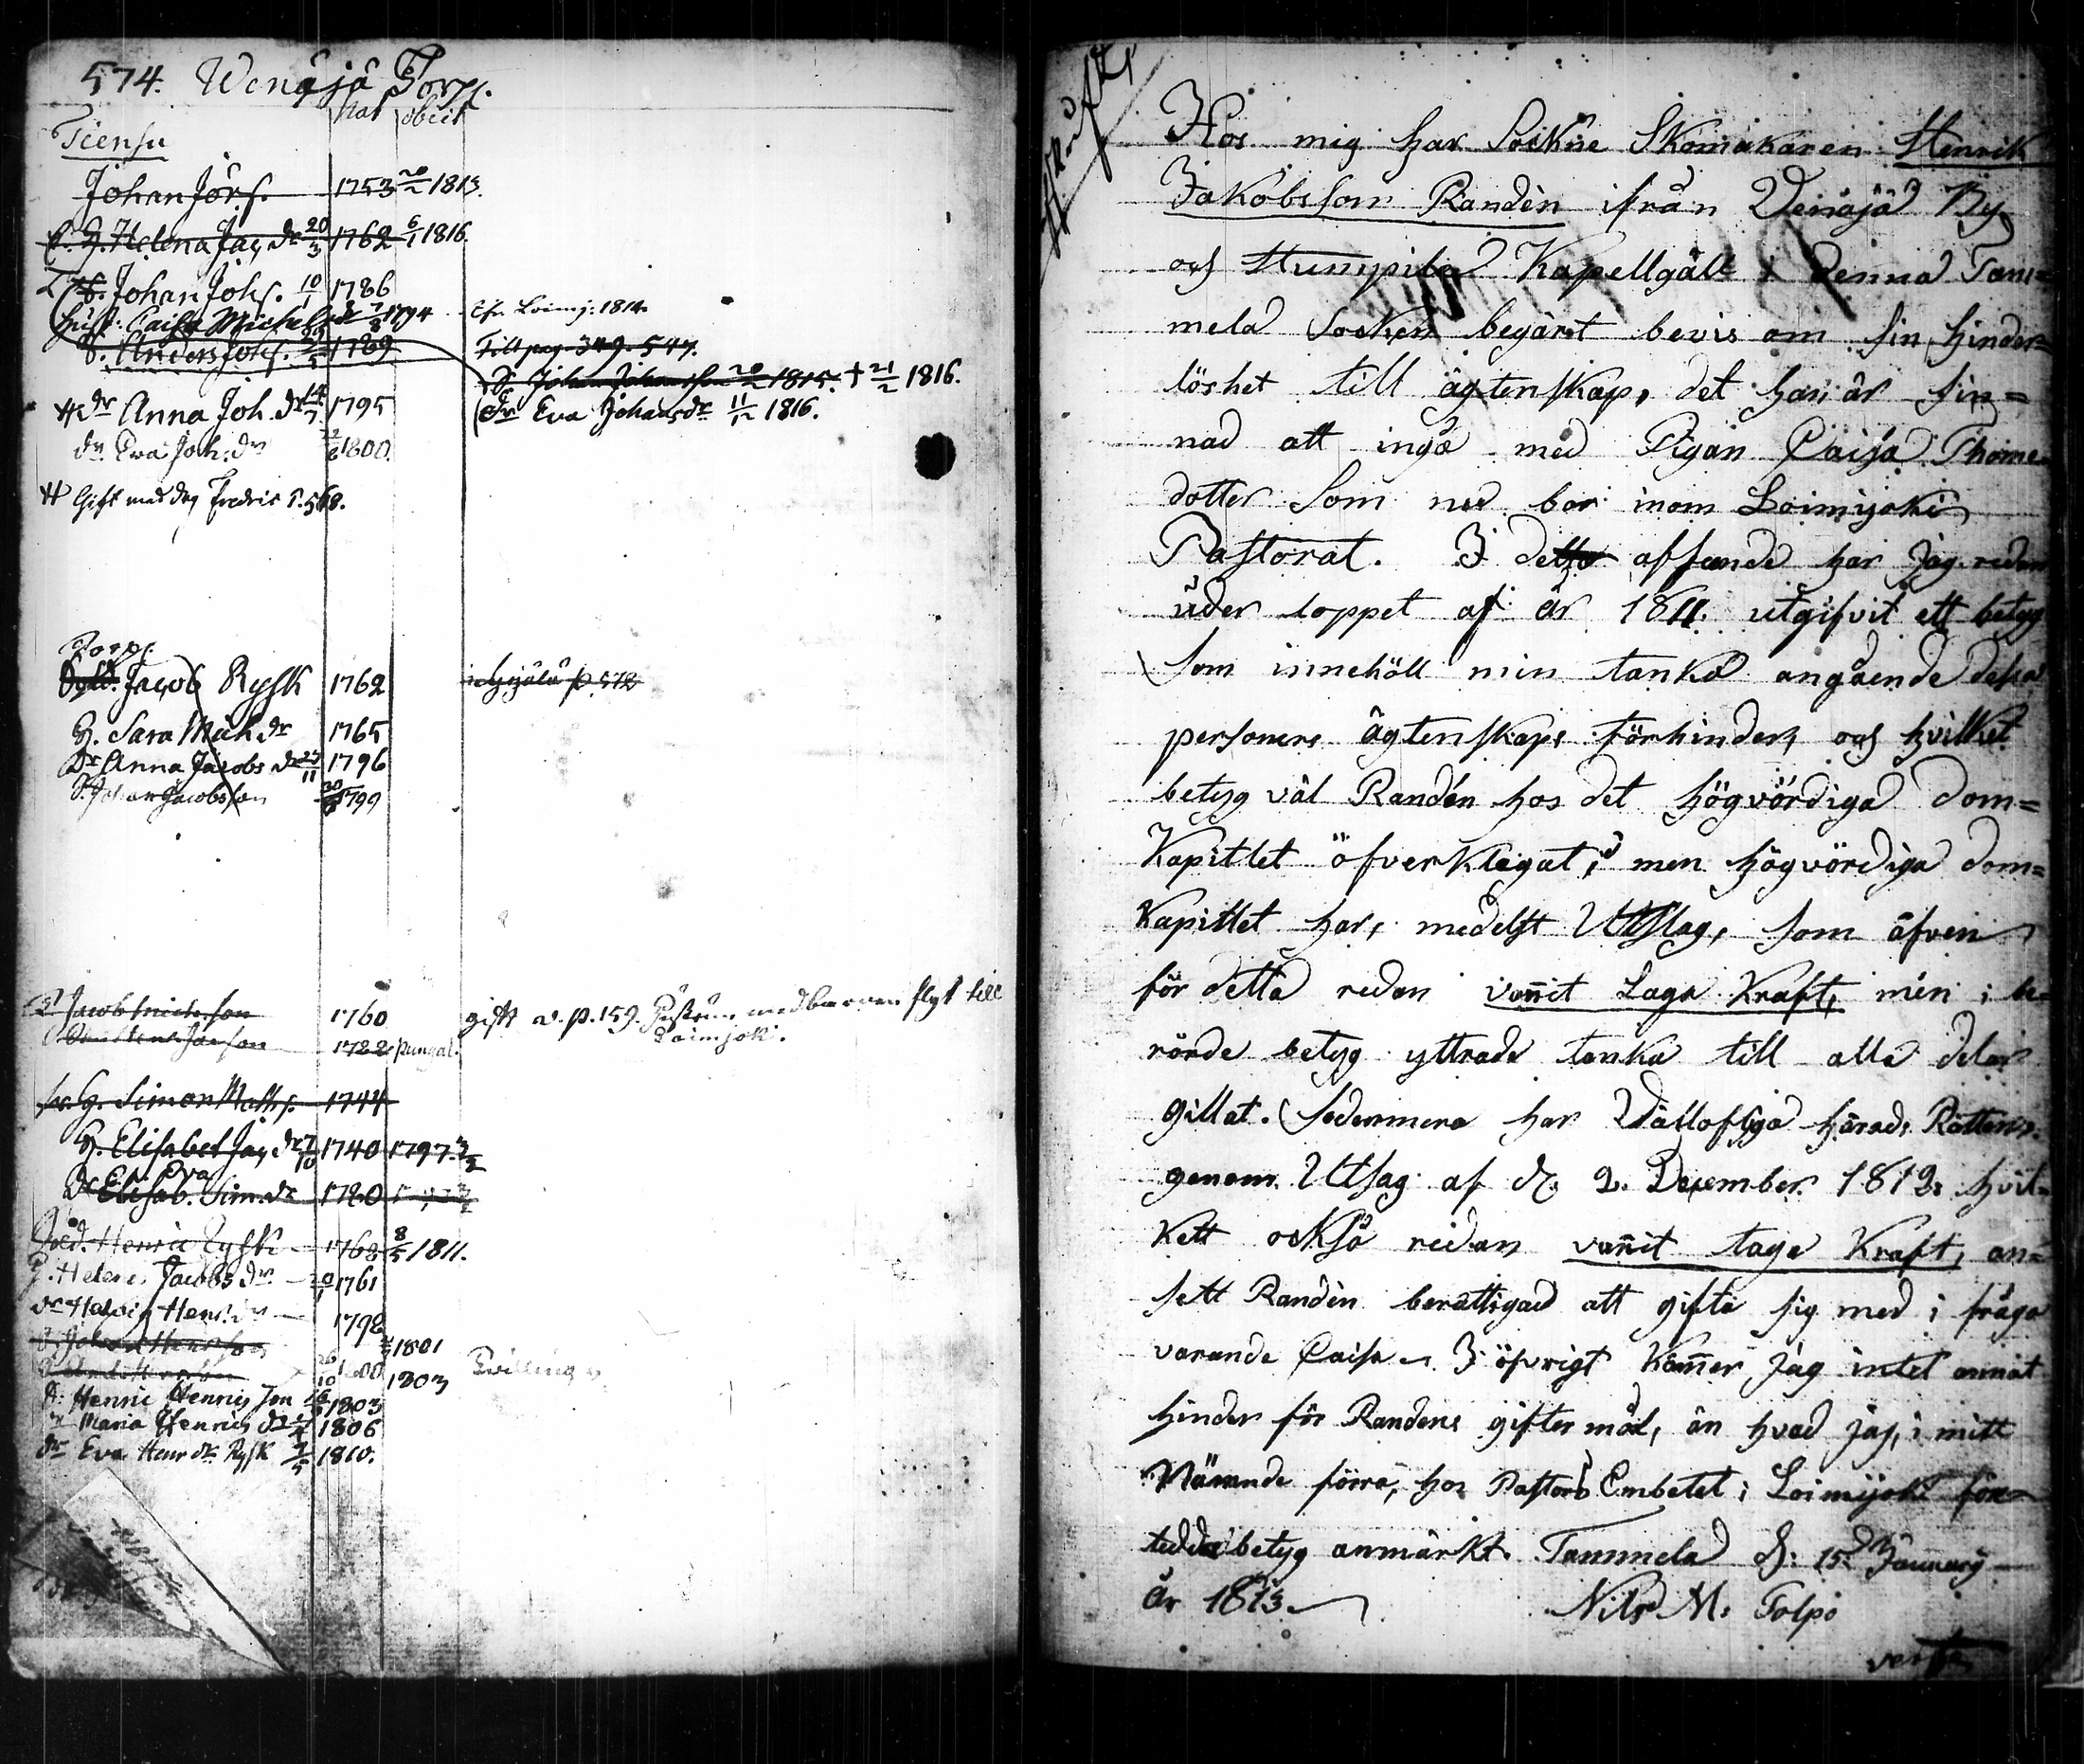 574. Wenäjä Torp.
nat obiit
Tiensu
Johan Jörs. 1753 20/2 1813.
E. H. Helena Jac. dr 20/3 1762 6/1 1816.
S. Johan Johs. 10/1 1786
hust: Caisa Michels dr 7/8 1794 Cfr. Loimj: 1814.
S. Anders Johs. 1789 Till pag. 349. 547.
S. Johan Johansson 20/2 1815. † 21/2 1816.
dr Anna Joh. dr 14/7 1795 dr Eva Johansdr 11/12 1816.
dr Eva Joh: dr 1800.
Gift med drg Fredric P. 568.
Torp.
Jacob Rysk 1762
H. Sara Mich dr 1765
Dr Anna Jacobs dr 27/11 1796
S. Johan Jacobsson 1799
Jacob Michelson 1760 gift v. p. 159. Hustrun med barnen flyt till
1722 Loimjoki.
Simon Maths. 1744
H. Elisabet Jac. dr 7/10 1740 1797.
Eva
Dr Elisab. Sim. dr 1720
Henric Rysk 1768 8/5 1811.
H. Helena Jacobs dr 1761
dr Helvig Henr. dr 1798
1801
1800 1803 Tvilling
S. Henric Henrics Son 1803
Maria Henrics dr 1806
dr Eva Henr dr Rysk 7/5 1810.
Afskrift,
Hos mig har Sockne Skomakaren Henrik
Jakobsson Randèn ifrån Venäjä By
och Humpila Kapellgäll i denna Tam=
mela Socken begärt bevis om sin hinder=
löshet till ägtenskap, det han är sin=
nad att ingå med Pigan Caisa Thome
dotter Som nu bor inom Loimijoki
Pastorat. I detta afseende har jag redan
under loppet af år 1811 utgifvit ett betyg
Som innehöll min tanka angående dessa
personers ägtenskaps förhinder, och hvilket
betyg väl Randén hos det högvördiga Dom=
Kapitlet öfverklagat; men högvördiga Dom=
Kapitlet har, medelst Utslag, Som äfven
för detta redan vunnit Laga Kraft, min i be=
rörde betyg yttrade tanka till alla delar
gillat. Sedermera har Vällofliga härads Rätten
genom Utslag af d. 2. December 1812. hvil=
kett också redan vunnit laga Kraft, an=
sett Randèn berättigad att gifta sig med i fråga
varande Caisa. I öfvrigt känner jag intet annat
hinder för Randens giftermål, än hvad jag, i mitt
förra, hos Pastors Embetet i Loimijoki före=
tedda betyg anmärkt. Tammela d: 15 January
År 1813. Nils M: Tolpo